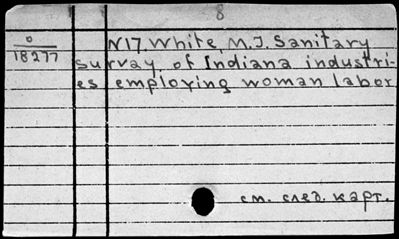 8
0
18277
N17. White, M.J. Sanitary
survay of Indiana industri-
es employing woman labor
см. след. карт.